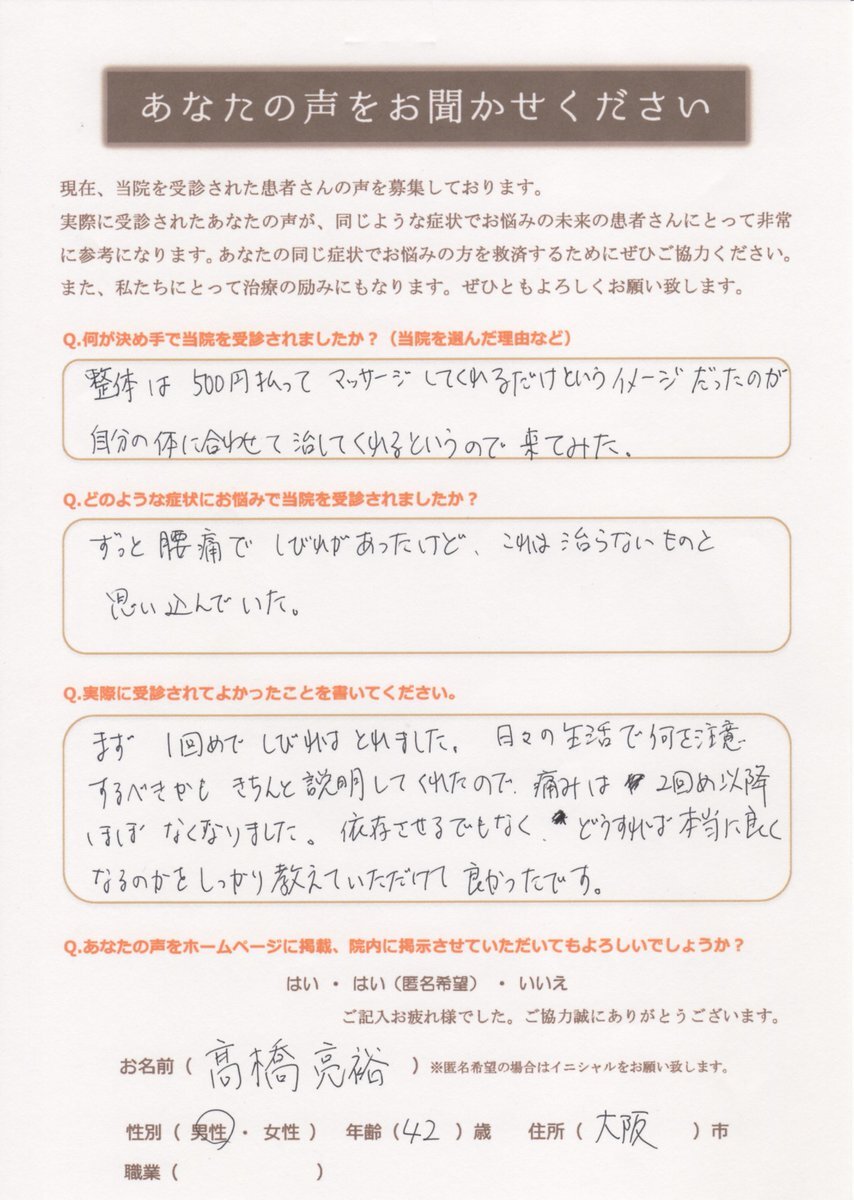 あなたの声をお聞かせください
現在、当院を受診された患者さんの声を募集しております。
実際に受診されたあなたの声が、同じような症状でお悩みの未来の患者さんにとって非常
に参考になります。あなたの同じ症状でお悩みの方を救済するためにぜひご協力ください。
また、私たちにとって治療の励みにもなります。ぜひともよろしくお願い致します。
Q.何が決め手で当院を受診されましたか？（当院を選んだ理由など）
整体は500円払ってマッサージしてくれるだけというイメージだったのが
自分の体に合わせて治してくれるというので来てみた。
Q.どのような症状にお悩みで当院を受診されましたか？
ずっと腰痛でしびれがあったけど、これは治らないものと
思い込んでいた。
Q.実際に受診されてよかったことを書いてください。
まず1回めでしびれはとれました。日々の生活で何を注意
するべきかもきちんと説明してくれたので、痛みは2回め以降
ほぼなくなりました。依存させるでもなく、どうすれば本当に良く
なるのかをしっかり教えていただけて良かったです。
Q.あなたの声をホームページに掲載、院内に掲示させていただいてもよろしいでしょうか？
はい ・ はい（匿名希望） ・ いいえ
ご記入お疲れ様でした。ご協力誠にありがとうございます。
お名前（ 髙橋亮裕 ）※匿名希望の場合はイニシャルをお願い致します。
性別（ 男性 ・ 女性 ） 年齢（ 42 ）歳 住所（ 大阪 ）市
職業（ ）